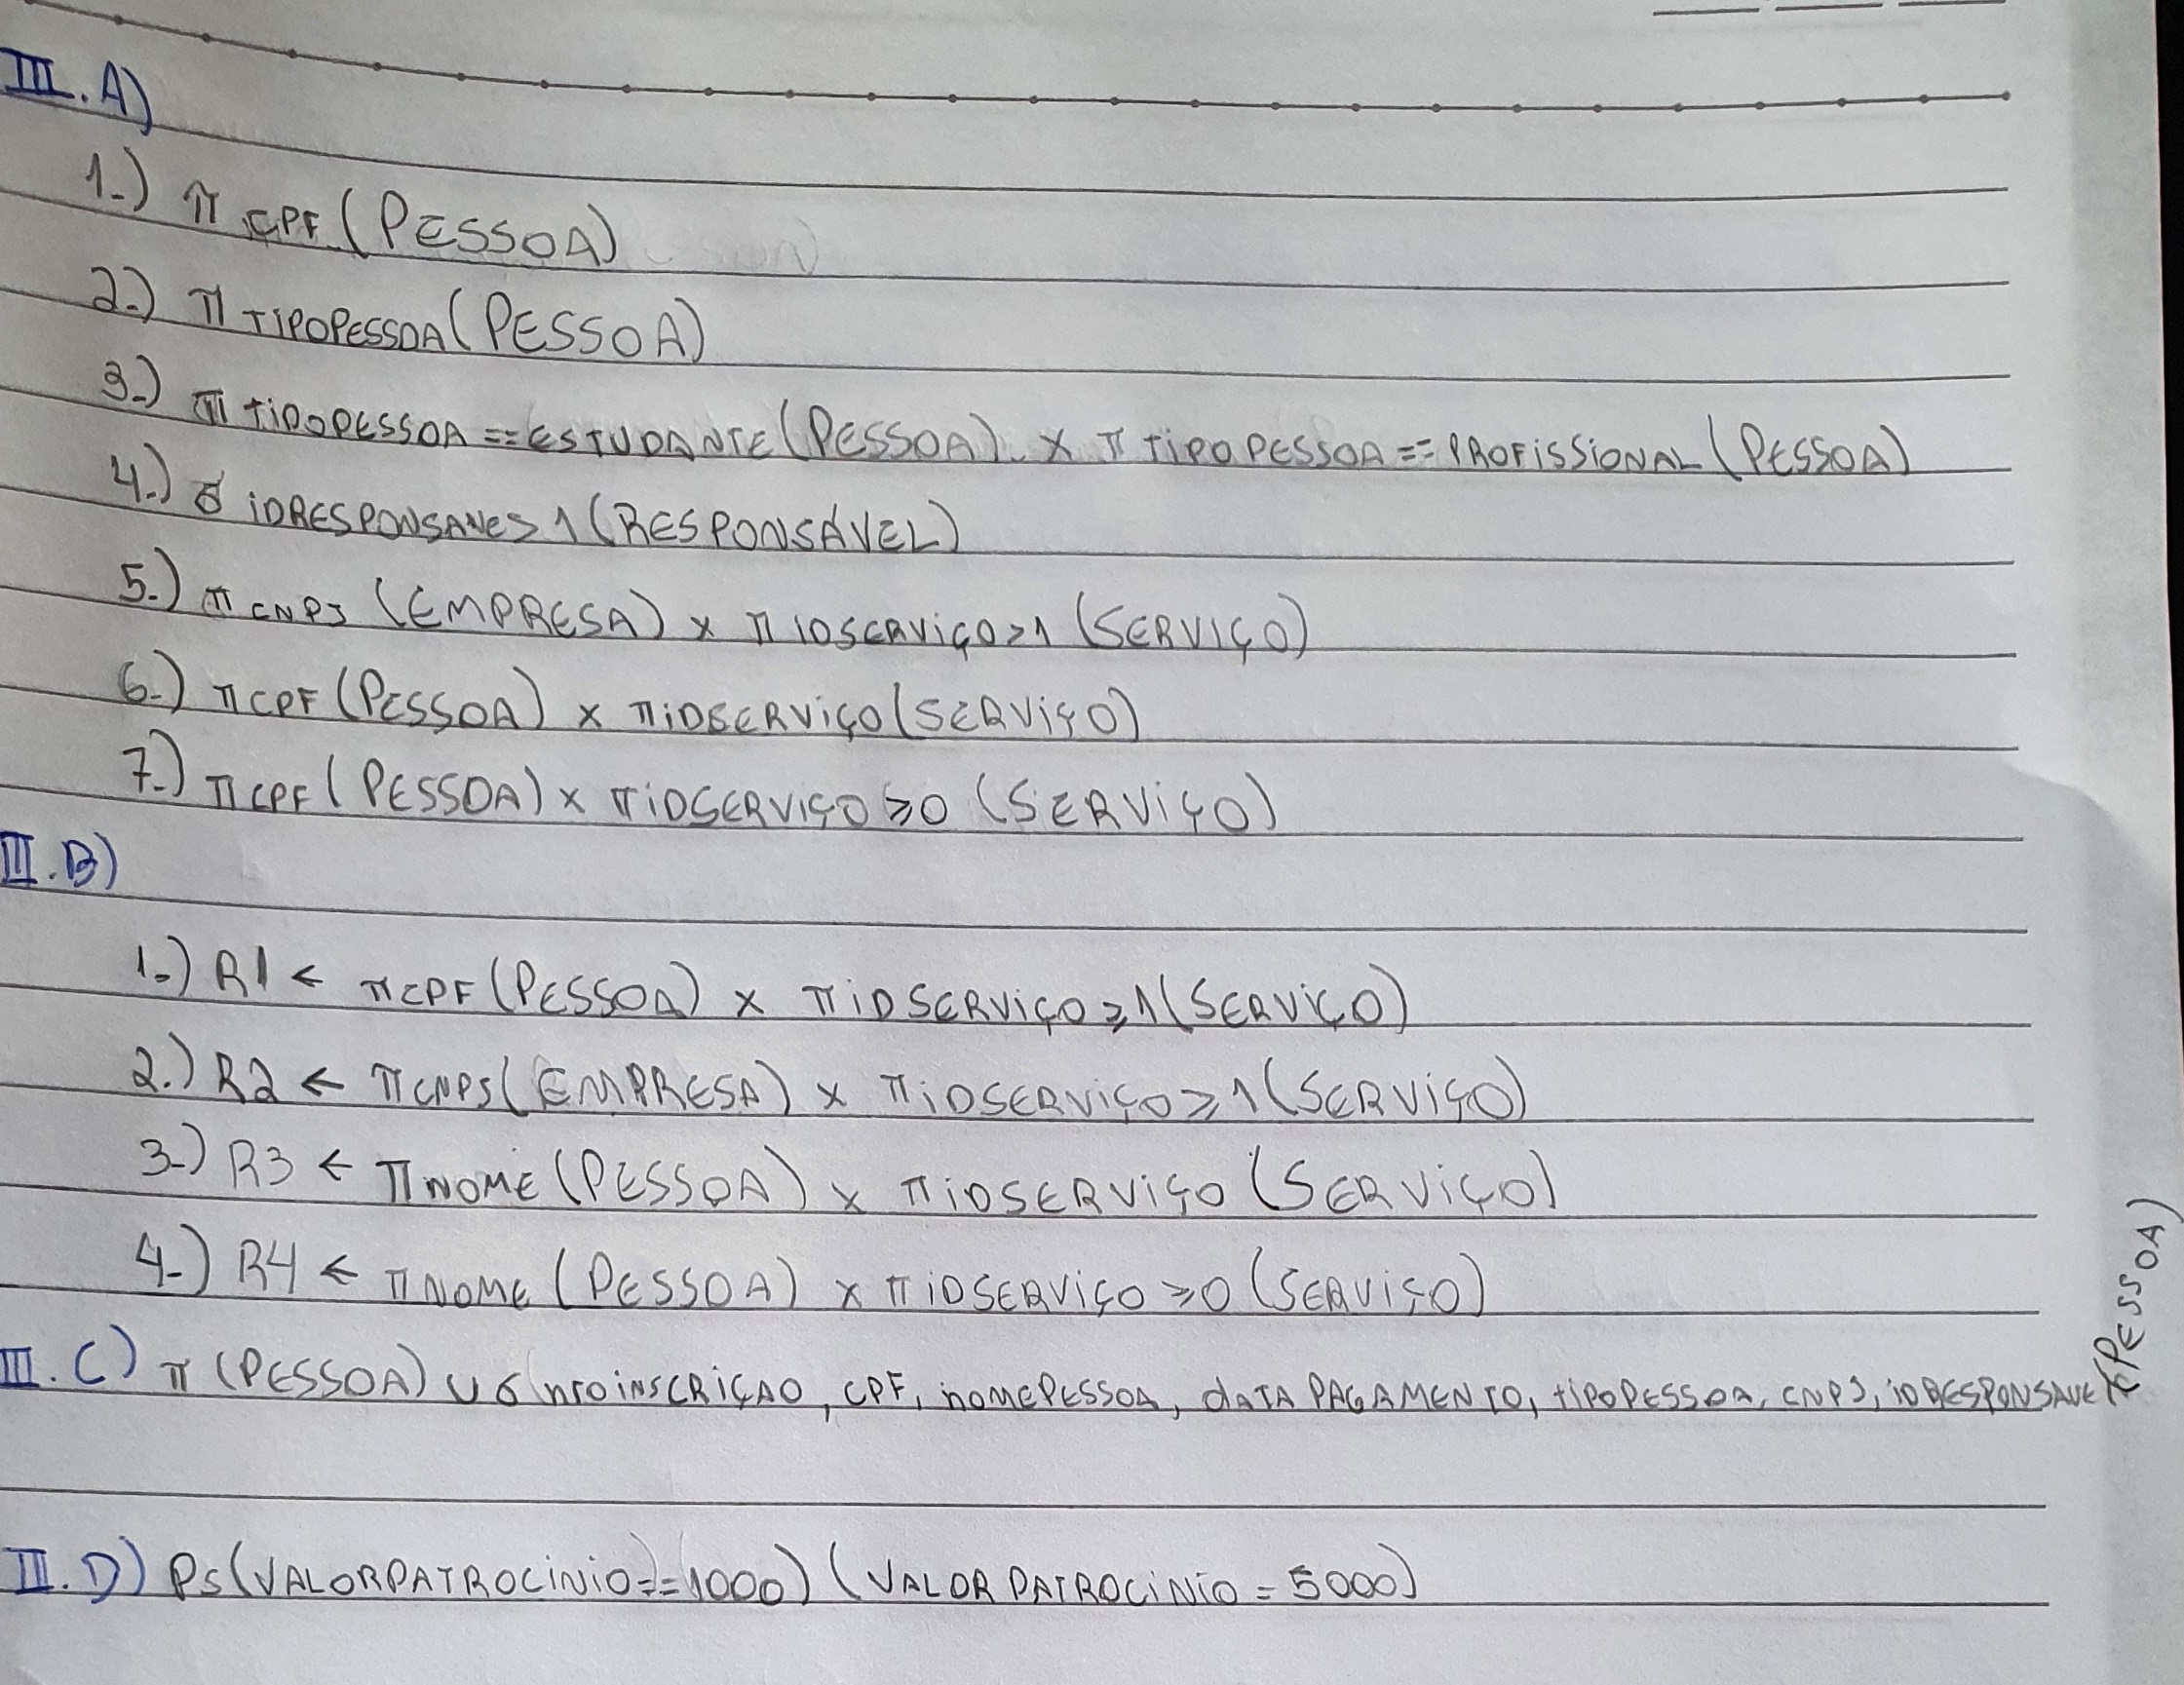 III.A)
1.) π CPF (PESSOA)
2.) π TIPOPESSOA (PESSOA)
3.) π TIPOPESSOA == ESTUDANTE (PESSOA) X π TIPOPESSOA == PROFISSIONAL (PESSOA)
4.) σ iDRESPONSAVE > 1 (RESPONSÁVEL)
5.) π CNPJ (EMPRESA) X π IDSERVIÇO > 1 (SERVIÇO)
6.) π CPF (PESSOA) X π iDSERVIÇO (SERVIÇO)
7.) π CPF (PESSOA) X π iDSERVIÇO ≥ 0 (SERVIÇO)
III.B)
1.) R1 ← π CPF (PESSOA) X π iDSERVIÇO ≥ 1 (SERVIÇO)
2.) R2 ← π CNPJ (EMPRESA) X π iDSERVIÇO ≥ 1 (SERVIÇO)
3.) R3 ← π NOME (PESSOA) X π iDSERVIÇO (SERVIÇO)
4.) R4 ← π NOME (PESSOA) X π iDSERVIÇO ≥ 0 (SERVIÇO)
III.C) π (PESSOA) ∪ σ (nroinSCRIÇAO, CPF, nomePESSOA, dATA PAGAMENTO, tiPOPESSOA, CNPJ, iDRESPONSAVE) (PESSOA)
III.D) PS (VALORPATROCÍNIO == 1000) (VALORPATROCÍNIO = 5000)